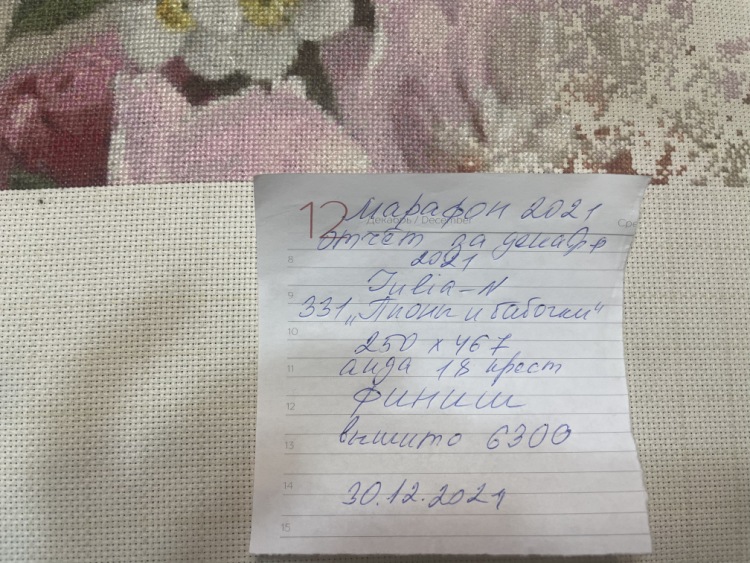 12
Декабрь / December
Сре
Марафон 2021
отчет за декабрь
2021
Iulia-N
331 „Пионы и бабочки"
250 х 467
аида 18 крест
Финиш
вышито 6300
30.12.2021
8
9
10
11
12
13
14
15